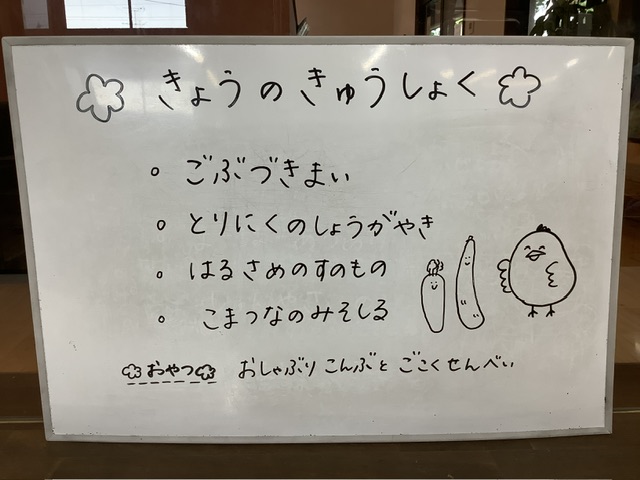 きょうのきゅうしょく
。ごぶづきまい
。とりにくのしょうがやき
。はるさめのすのもの
。こまつなのみそしる
おやつ おしゃぶりこんぶと ごこくせんべい